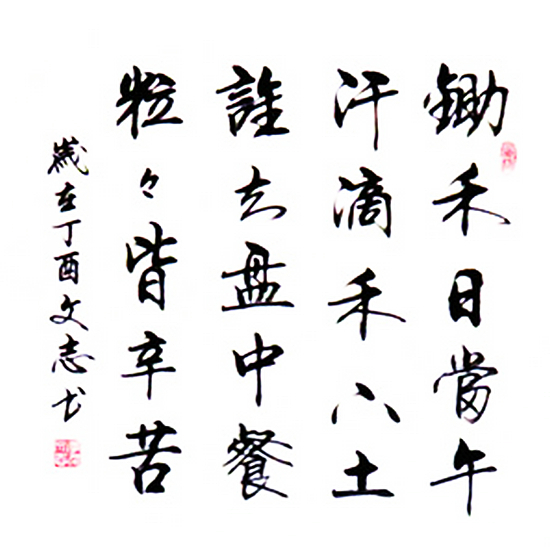 鋤禾日當午
汗滴禾下土
誰知盘中餐
粒々皆辛苦
歲在丁酉文志书